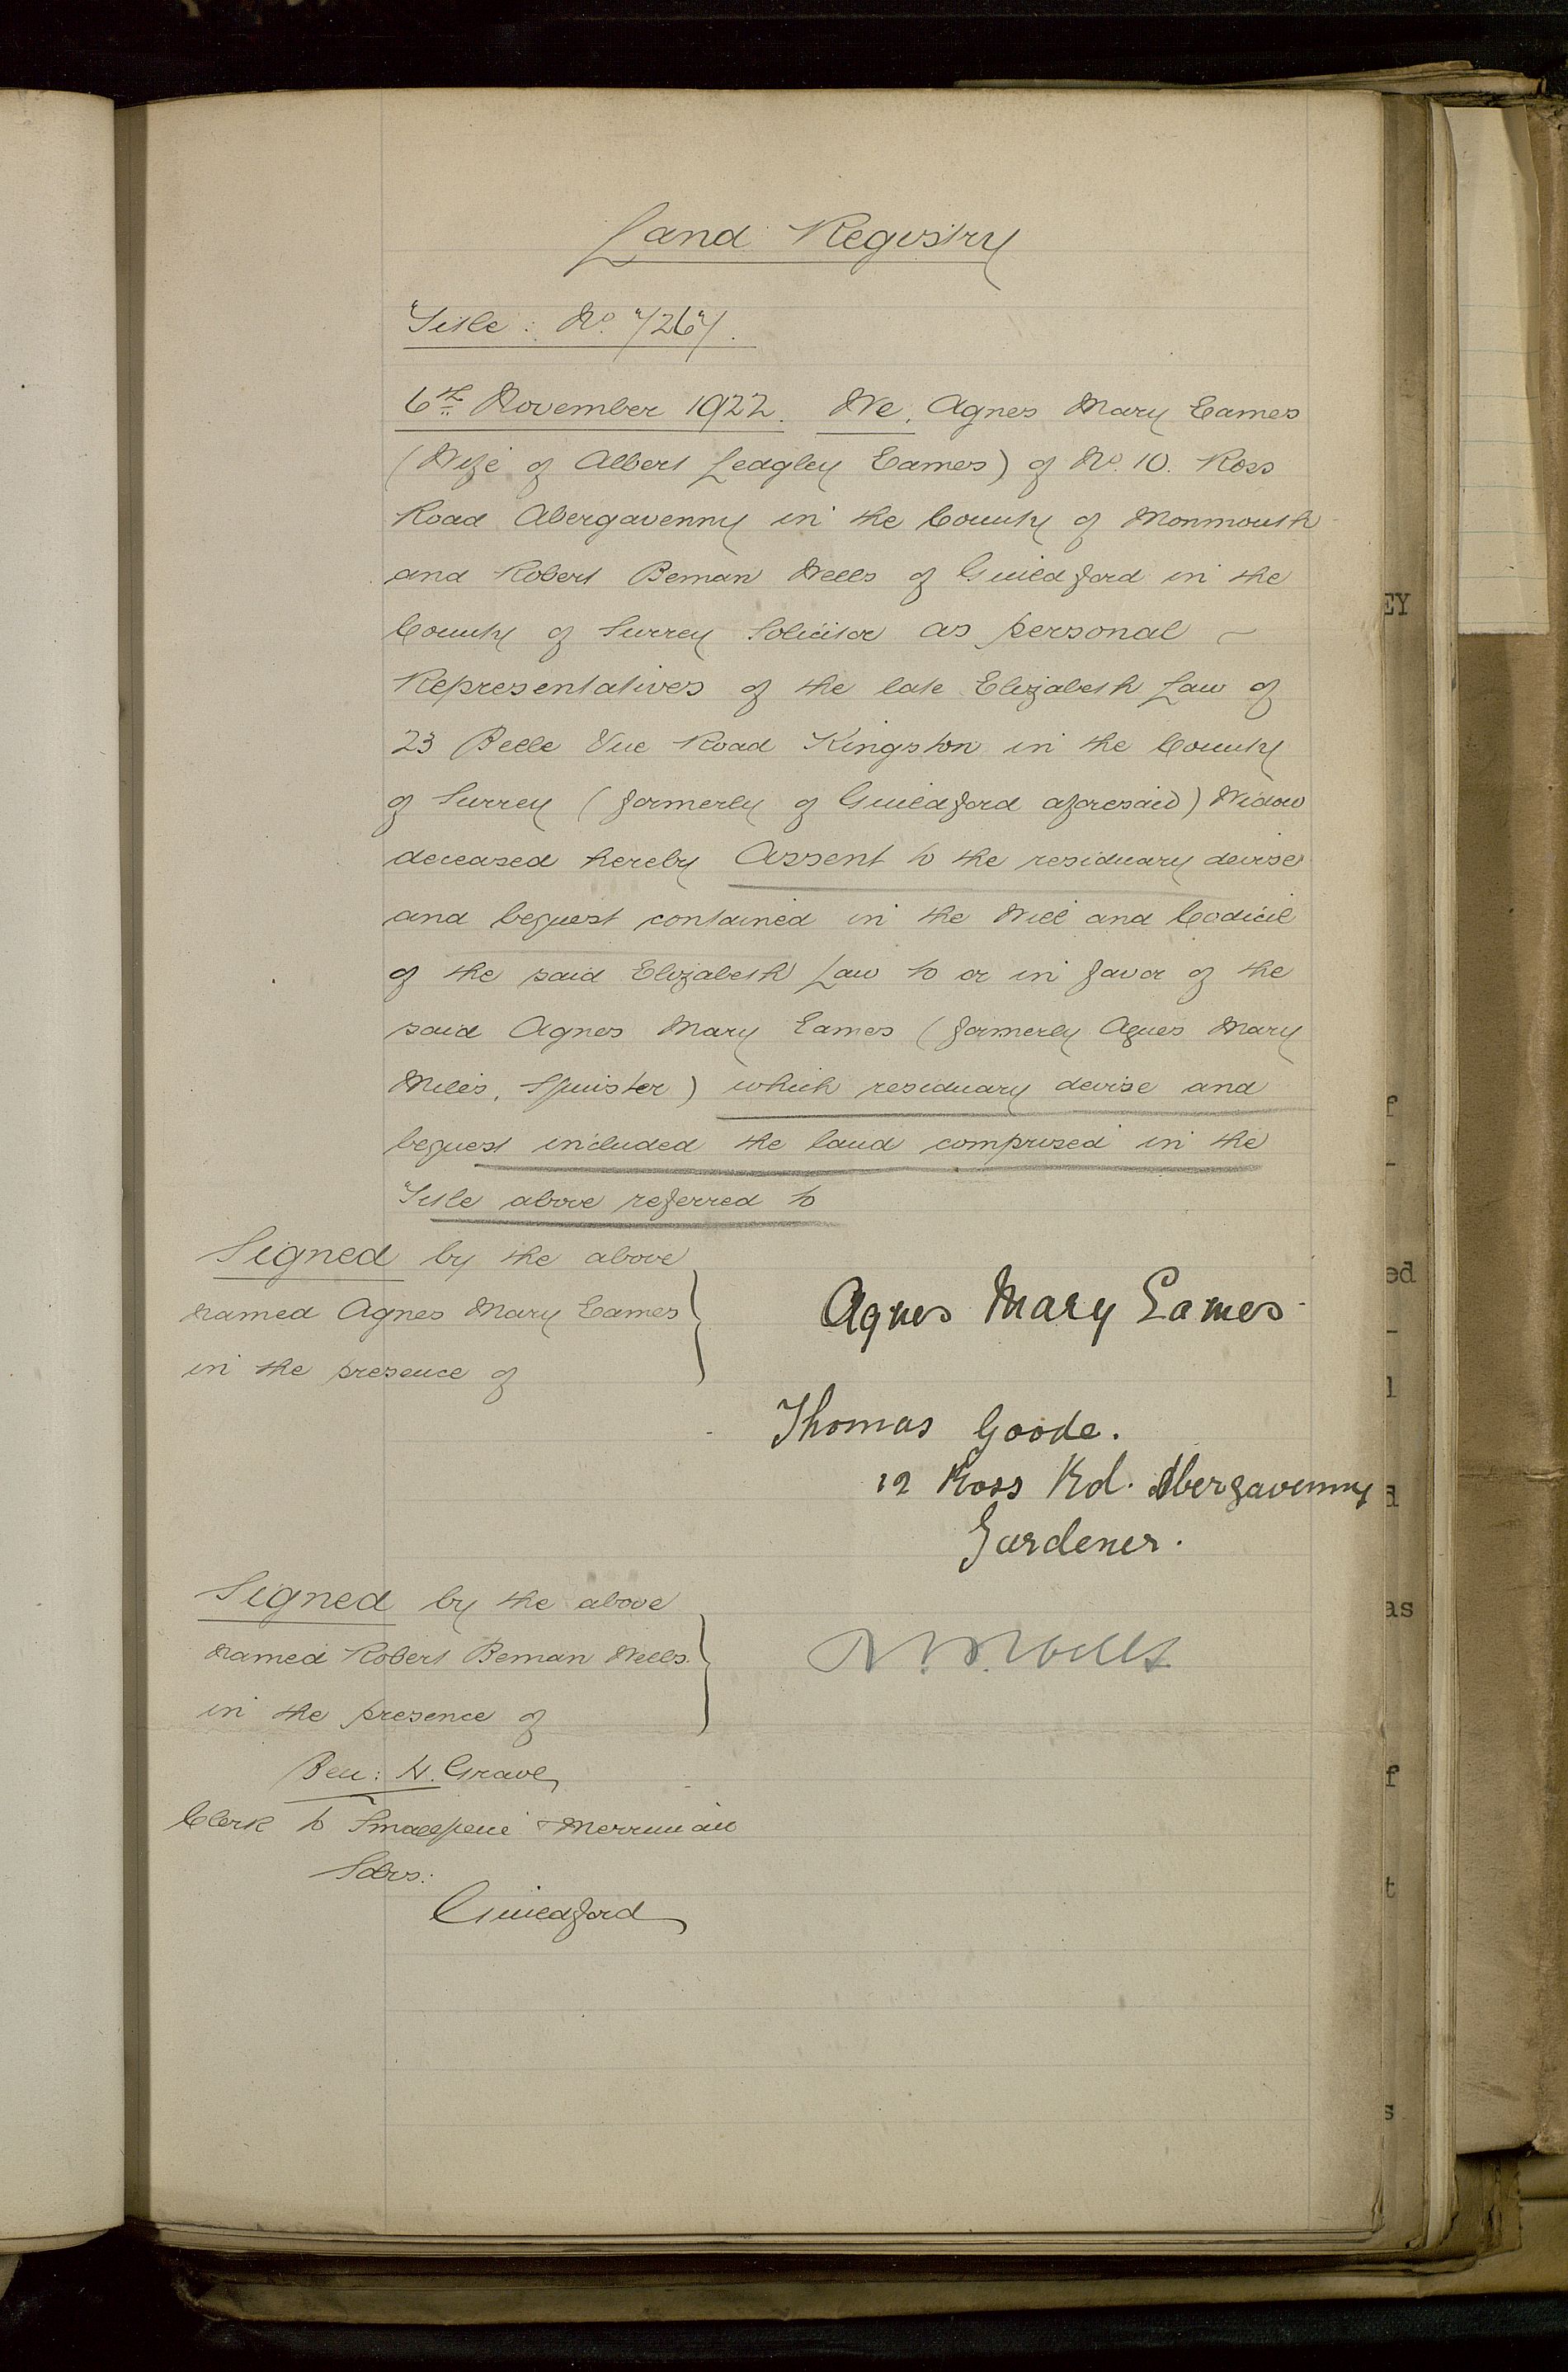 Land Registry
Title: No. 7267.
6th November 1922. We, Agnes Mary Eames
(Wife of Albert Ledgley Eames) of No. 10. Ross
Road Abergavenny in the County of Monmouth
and Robert Beman Wells of Guildford in the
County of Surrey Solicitor as personal ~
Representatives of the late Elizabeth Law of
23 Belle Vue Road Kingston in the County
of Surrey (formerly of Guildford aforesaid) Widow
deceased hereby Assent to the residuary devise
and bequest contained in the Will and Codicil
of the said Elizabeth Law to or in favor of the
said Agnes Mary Eames (formerly Agnes Mary
Miles, Spinster) which residuary devise and
bequest included the land comprised in the
Title above referred to
Signed by the above
named Agnes Mary Eames
in the presence of
Agnes Mary Eames
Thomas Goode.
12 Ross Rd. Abergavenny
Gardener.
Signed by the above
named Robert Beman Wells
in the presence of
R. B. Wells
Ben: H. Grave
Clerk to Smallpeice & Merriman
Solrs:
Guildford
EY
f
-
ed
-
l
d
as
f
t
s